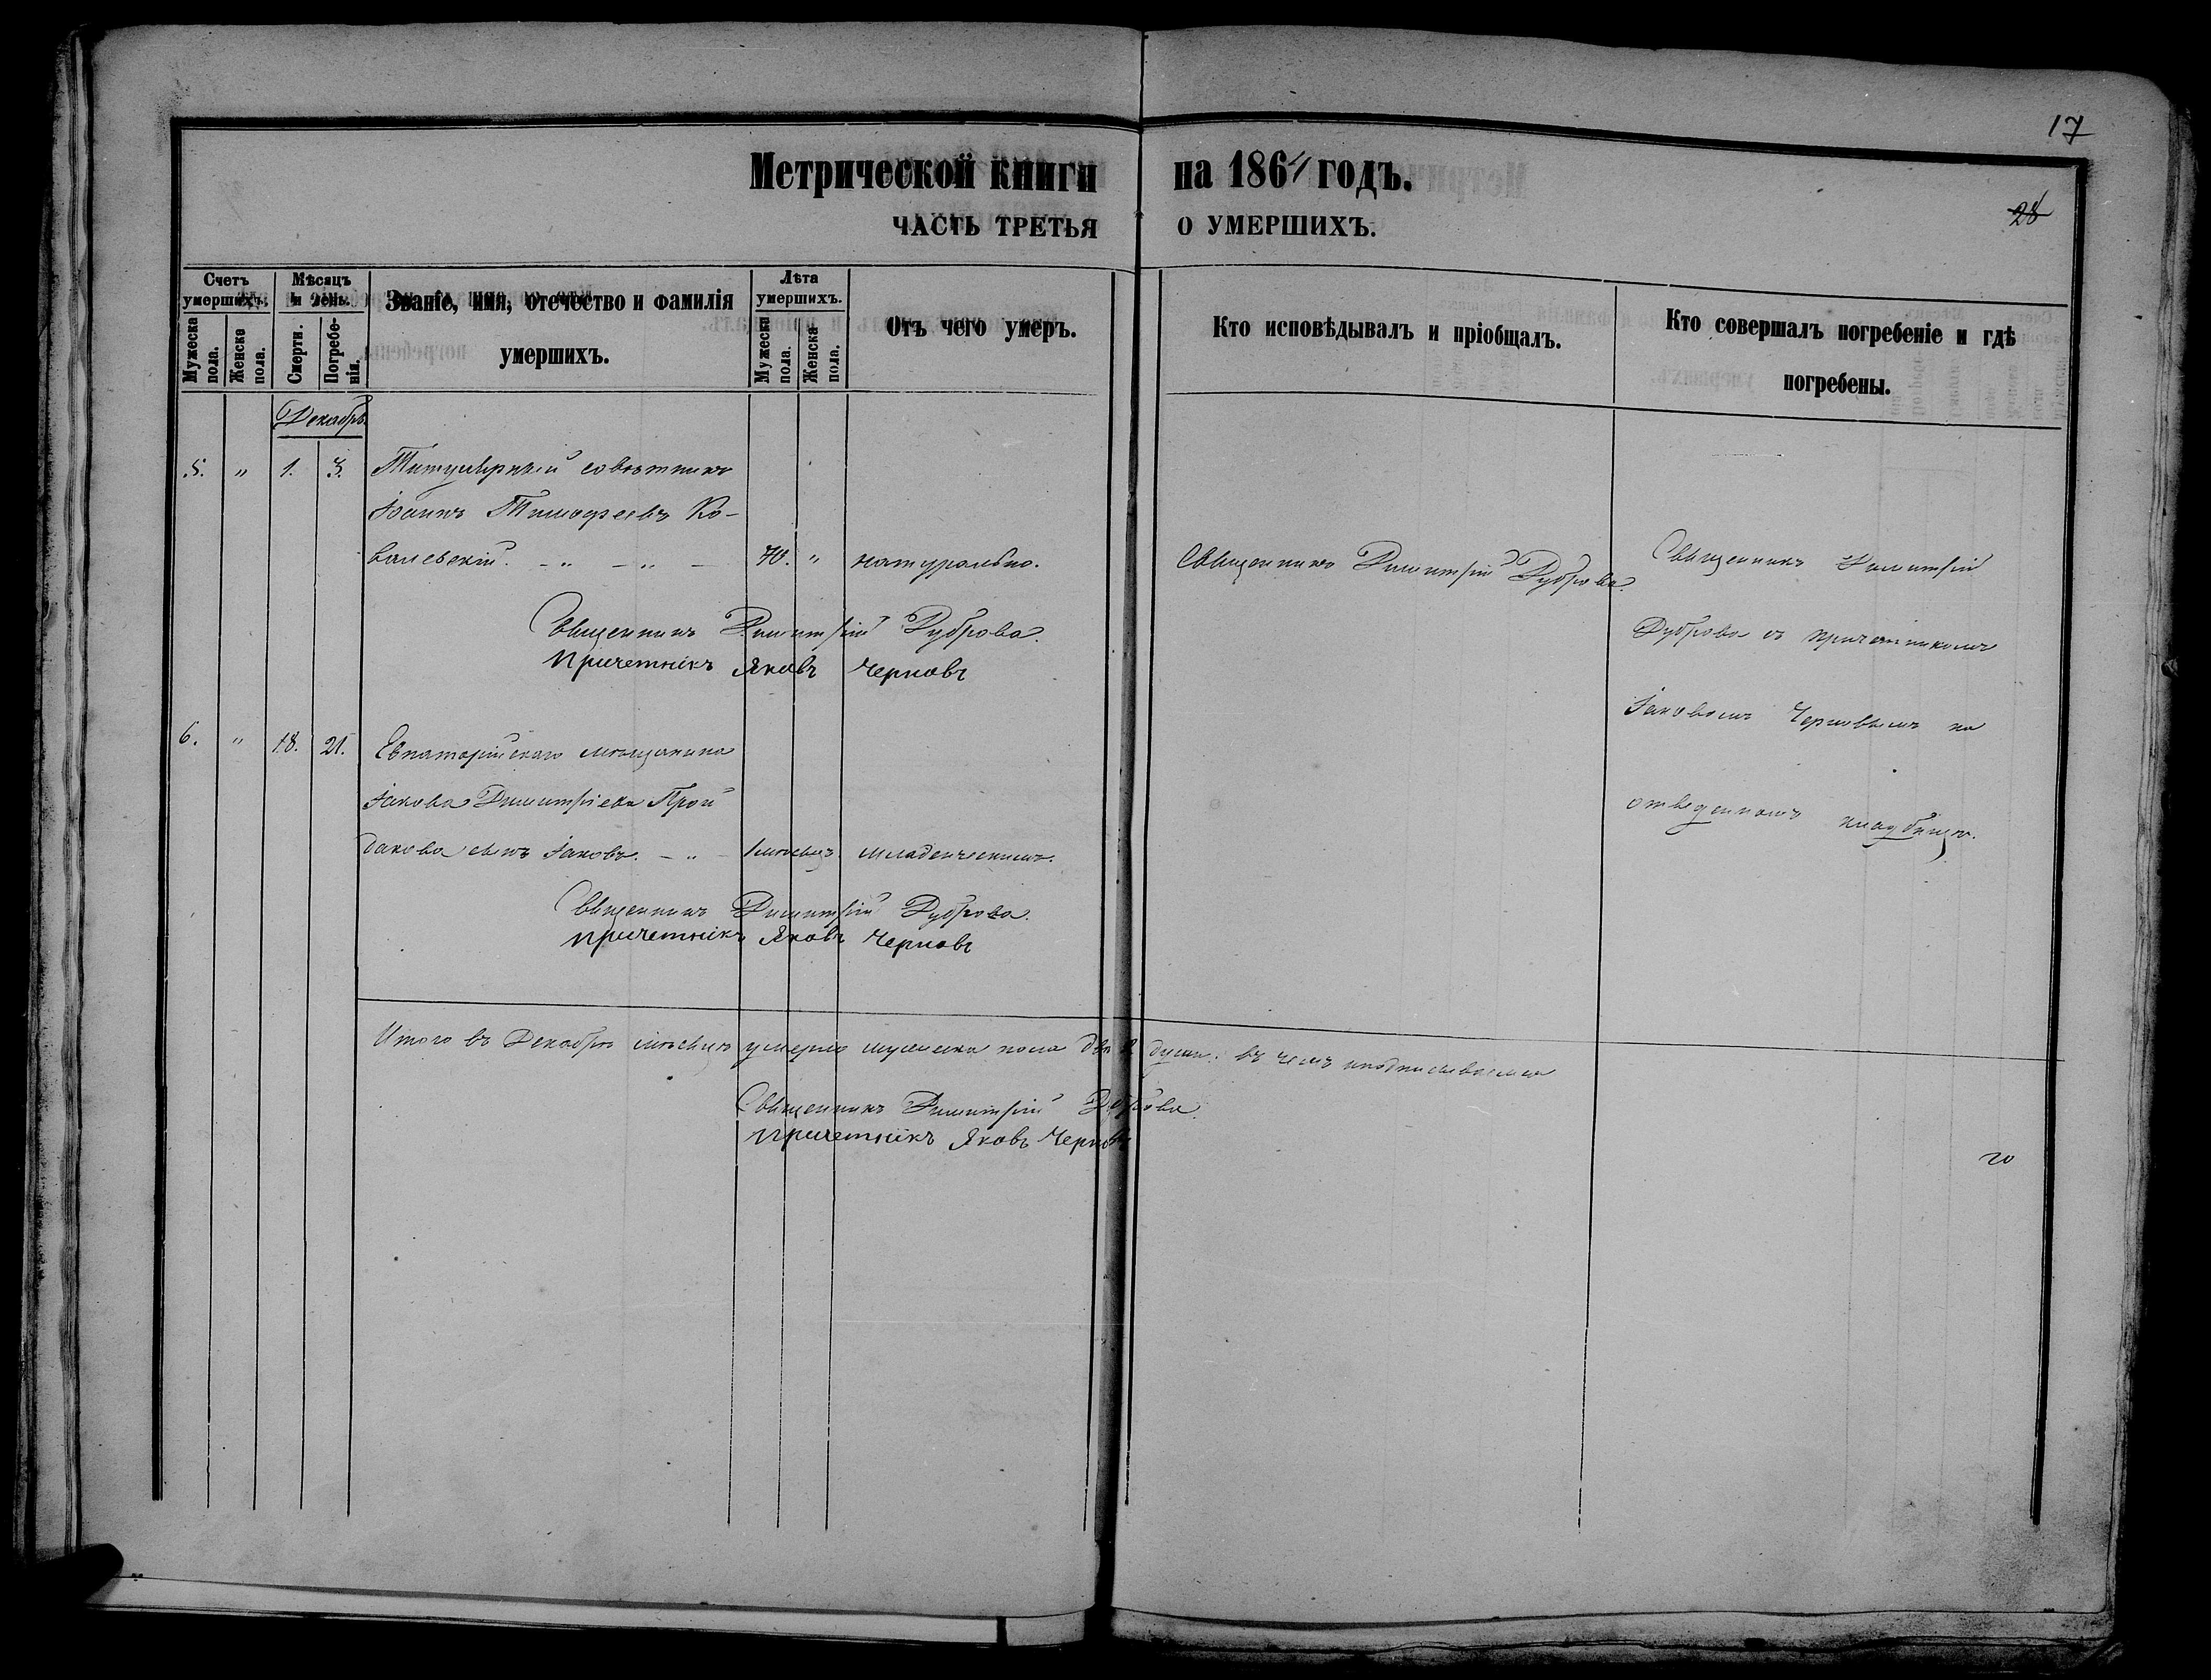 17
Метрической книги на 1864 годъ.
28
ЧАСТЬ ТРЕТЬЯ О УМЕРШИХЪ.
Счетъ умершихъ.
Мужеска пола.
Женска пола.
Мѣсяцъ и день.
Смерти.
Погребе-
нія.
Званіе, имя, отечество и фамилія
умершихъ.
Лѣта умершихъ.
Мужеска пола.
Женска пола.
Отъ чего умеръ.
Кто исповѣдывалъ и пріобщалъ.
Кто совершалъ погребеніе и гдѣ
погребены.
Декабрь
5. " 1. 3. Титулярный совѣтникъ
Іоаннъ Тимофеевъ Ко-
валевскій. - " - " - 70. " натурально.
Священникъ Димитрій Дуброва.
Священникъ Димитрій
Дуброва съ причетникомъ
Іаковомъ Черновымъ на
отведенномъ кладбищѣ.
Священникъ Димитрій Дуброва.
Причетнікъ Яковъ Черновъ
6. " 18. 21. Евпаторійскаго мѣщанина
Іакова Димитріева Прой
дакова сынъ Іаковъ. - " - 1 мѣсяцъ. младенческимъ.
Священникъ Димитрій Дуброва.
Причетнікъ Яковъ Черновъ
Итого въ Декабрѣ мѣсяцѣ умерло мужеска пола двѣ 2 души. въ чемъ и подписываемся
Священникъ Димитрій Дуброва.
Причетнікъ Яковъ Черновъ
20